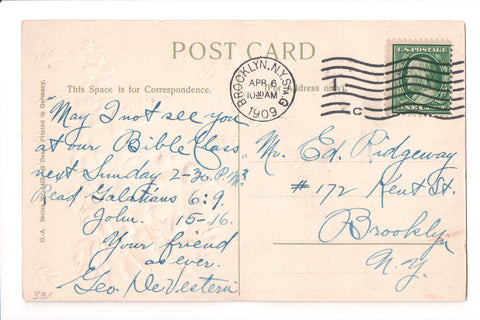 POST CARD
This Space is for Correspondence.
(For Address only)
U.S. POSTAGE
ONE CENT
BROOKLYN, N.Y. STA. G
APR 6
10 30 AM
1909
1
C
"May I not see you
at our Bible Class
next Sunday 2-30 P.M?
Read Galatians 6:9.
John. 15-16.
Your friend
as ever.
Geo. DeVestern
Mr. Ed. Ridgeway
# 172 Kent St.
Brooklyn
N.Y.
Printed in Germany.
G.-A.
331